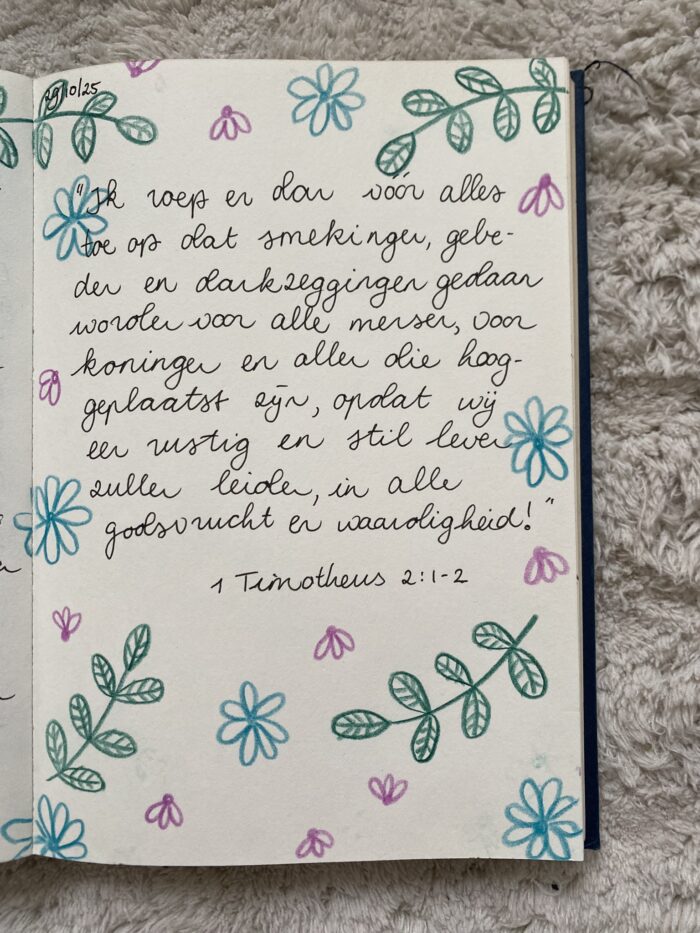 29/10/25
"Ik roep er dan vóór alles
toe op dat smekingen, gebe-
den en dankzeggingen gedaan
worden voor alle mensen, voor
koningen en allen die hoog-
geplaatst zijn, opdat wij
een rustig en stil leven
zullen leiden, in alle
godsvrucht en waardigheid!"
1 Timotheus 2:1-2